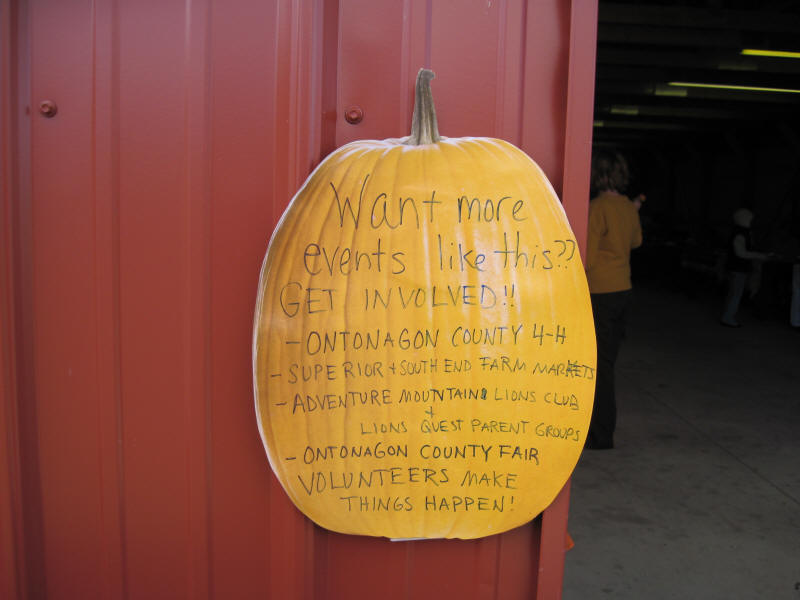 Want more
events like this??
GET INVOLVED!!
- ONTONAGON COUNTY 4-H
- SUPERIOR + SOUTH END FARM MARKETS
- ADVENTURE MOUNTAIN LIONS CLUB
+
LIONS QUEST PARENT GROUPS
- ONTONAGON COUNTY FAIR
VOLUNTEERS MAKE
THINGS HAPPEN!